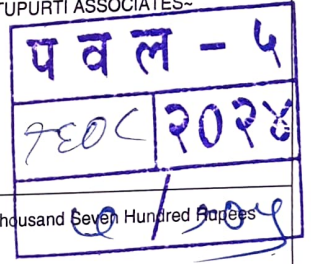 TUPURTI ASSOCIATES~
प व ल - ५
७६०८ २०२४
housand Seven Hundred Rupees
/